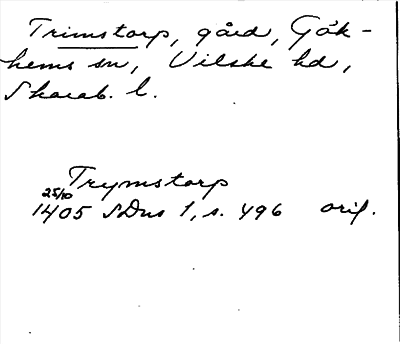 Trimstorp, gård, Gök-
hems sn, Vilske hd,
Skarab. l.
Trymstorp
25/10
1405 SDns 1, s. 496 orig.